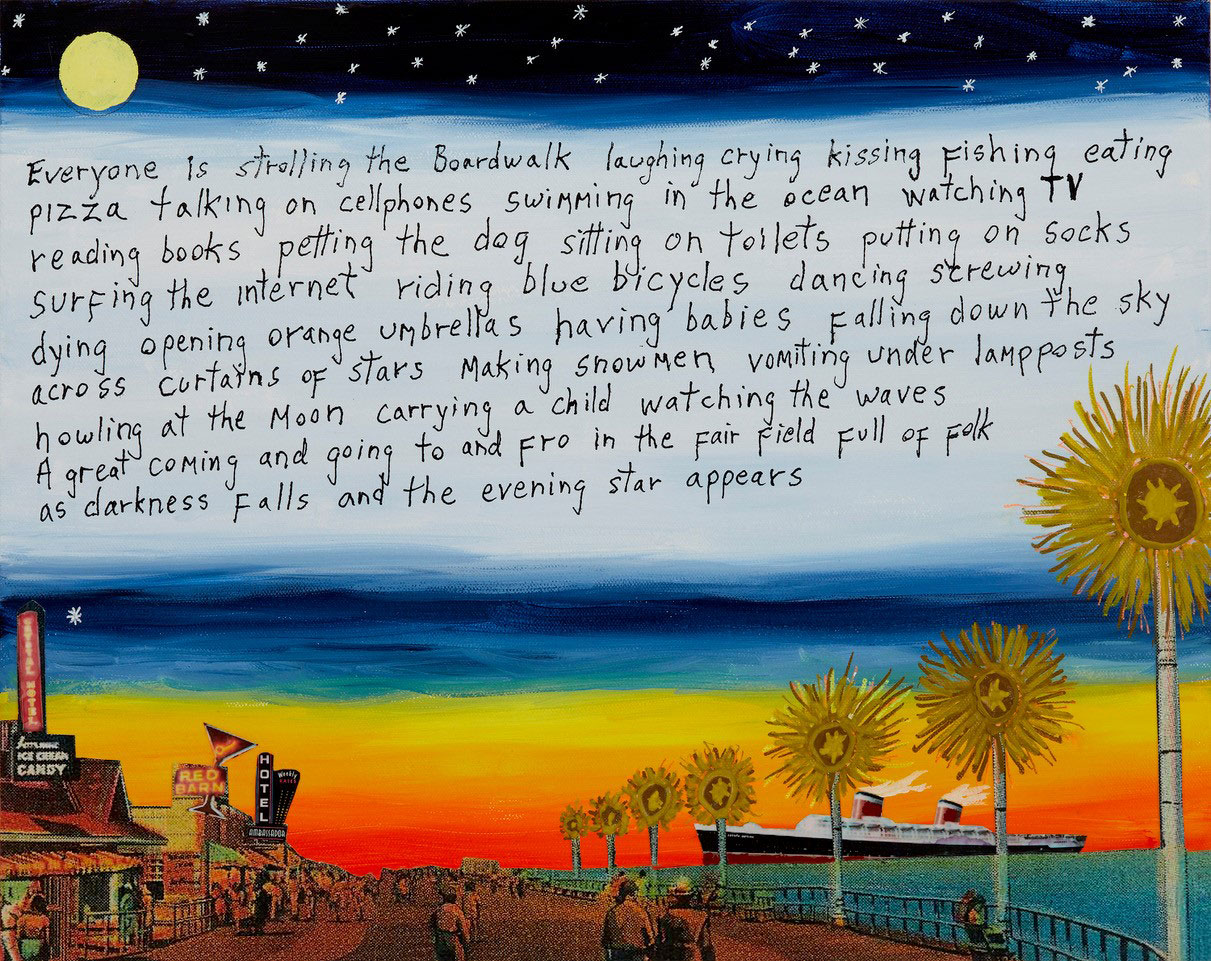 Everyone Is strolling the Boardwalk laughing crying kissing Fishing eating
pizza talking on cellphones swimming in the ocean watching TV
reading books petting the dog sitting on toilets putting on socks
surfing the internet riding blue bicycles dancing screwing
dying opening orange umbrellas having babies Falling down the sky
across curtains of stars Making snowmen vomiting under lampposts
howling at the Moon carrying a child watching the waves
A great coming and going to and Fro in the Fair Field Full of Folk
as darkness Falls and the evening star appears
HOTEL
ICE CREAM
CANDY
RED
BARN
HOTEL
AMBASSADOR